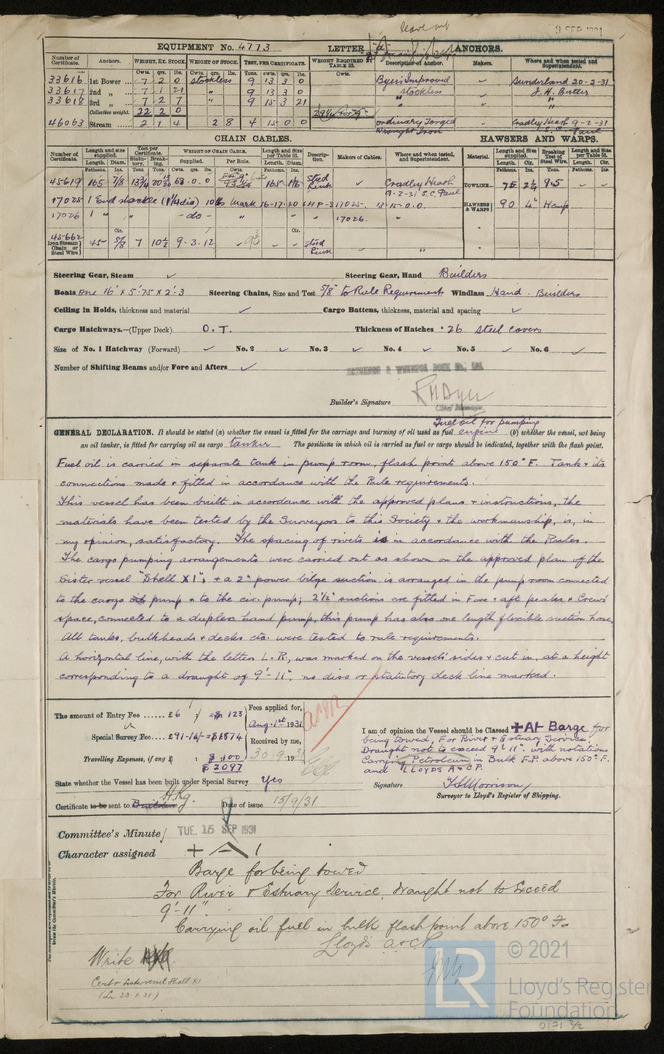 leave out
EQUIPMENT No. 4773 LETTER ANCHORS.
Number of Certificate. Anchors. WEIGHT, EX. STOCK. WEIGHT OF STOCK. TEST, PER CERTIFICATE. WEIGHT REQUIRED TABLE 22. Description of Anchor. Makers. Where and when tested and Superintendent.
33616 1st Bower 7 2 0 stockless 9 13 3 0 Byers Improved Sunderland 20-2-31
33617 2nd „ 7 1 21 „ 9 13 3 0 stockless J. H. Butler
33618 3rd „ 7 2 7 „ 9 15 3 21 „
Collective weight. 22 2 0
46063 Stream 2 1 4 2 8 4 15 0 0 ordinary Forged Wrought Iron Cradley Heath 9-2-31
CHAIN CABLES. HAWSERS AND WARPS.
Number of Certificate. Length and size supplied. Test per Certificate. WEIGHT OF CHAIN CABLE. Length and size per Table 22. Description. Makers of Cables. Where and when tested, and Superintendent. Material. Length and Size supplied. Breaking Test of Steel Wire. Length and Size per Table 22.
Fathoms. Ins. Supplied. Per Rule.
45619 165 7/8 68.0.0 165 stud link Cradley Heath TOWLINE 75 2¼ 9.5
9-2-31 E.C. Paul
17025 1 End shackle 16-17-30 HAWSERS & WARPS 90 4" Hemp
17026 1 „ „ -do- 17026.
45662 Iron Stream Chain or Steel Wire 45 5/8 7 10½ 9-3.12 stud link
Steering Gear, Steam Steering Gear, Hand Builders
Boats one 16' x 5.75 x 2'.3 Steering Chains, Size and Test 5/8" to Rule Requirements Windlass Hand. Builders
Ceiling in Holds, thickness and material Cargo Battens, thickness, material and spacing
Cargo Hatchways.—(Upper Deck) O.T. Thickness of Hatches .26 steel covers
Size of No. 1 Hatchway (Forward) No. 2 No. 3 No. 4 No. 5 No. 6
Number of Shifting Beams and/or Fore and Afters
HONGKONG & WHAMPOA DOCK Co., Ld.
Builder's Signature
Chief Manager.
Fuel oil for pumping
GENERAL DECLARATION. It should be stated (a) whether the vessel is fitted for the carriage and burning of oil used as fuel engine (b) whether the vessel, not being
an oil tanker, is fitted for carrying oil as cargo tanker The positions in which oil is carried as fuel or cargo should be indicated, together with the flash point.
Fuel oil is carried in separate tank in pump room, flash point above 150°F. Tank & its
connections made & fitted in accordance with the Rule requirements.
This vessel has been built in accordance with the approved plans & instructions, the
materials have been tested by the Surveyors to this Society & the workmanship, is, in
my opinion, satisfactory. The spacing of rivets is in accordance with the Rules.
The cargo pumping arrangements were carried out as shown on the approved plan of the
Sister vessel "Shell XI", & a 2" power bilge suction is arranged in the pump room connected
to the cargo pump & to the cir. pump; 2½" suctions are fitted in Fore & aft peaks & Crew's
space, connected to a duplex hand pump, this pump has also one length flexible suction hose.
All tanks, bulkheads & decks etc. were tested to rule requirements.
A horizontal line, with the letters L.R, was marked on the vessels' sides & cut in, at a height
corresponding to a draught of 9'-11", no disc or statutory deck line marked.
The amount of Entry Fee ...... £6 = $ 123 Fees applied for,
Special Survey Fee.... £91-14/- = $1874 Aug. 1st 1931
Received by me,
Travelling Expenses, if any $ 100 30.9.1931
$ 2097
I am of opinion the Vessel should be Classed +A1 Barge for
being towed, For River & Estuary Service,
Draught not to exceed 9'11". with notations
Carrying Petroleum in Bulk F.P. above 150°F.
and LLOYDS A & CP.
State whether the Vessel has been built under Special Survey Yes
Signature
Surveyor to Lloyd's Register of Shipping.
Certificate to be sent to H.Kg. Date of issue 15/9/31
Committee's Minute TUE. 15 SEP 1931
Character assigned + A 1
Barge for being towed
For River & Estuary Service, draught not to exceed
9'-11"
Carrying oil fuel in bulk flash point above 150° F.
Lloyds A & CP.
Write
© 2021
LR
Lloyd's Register
Foundation